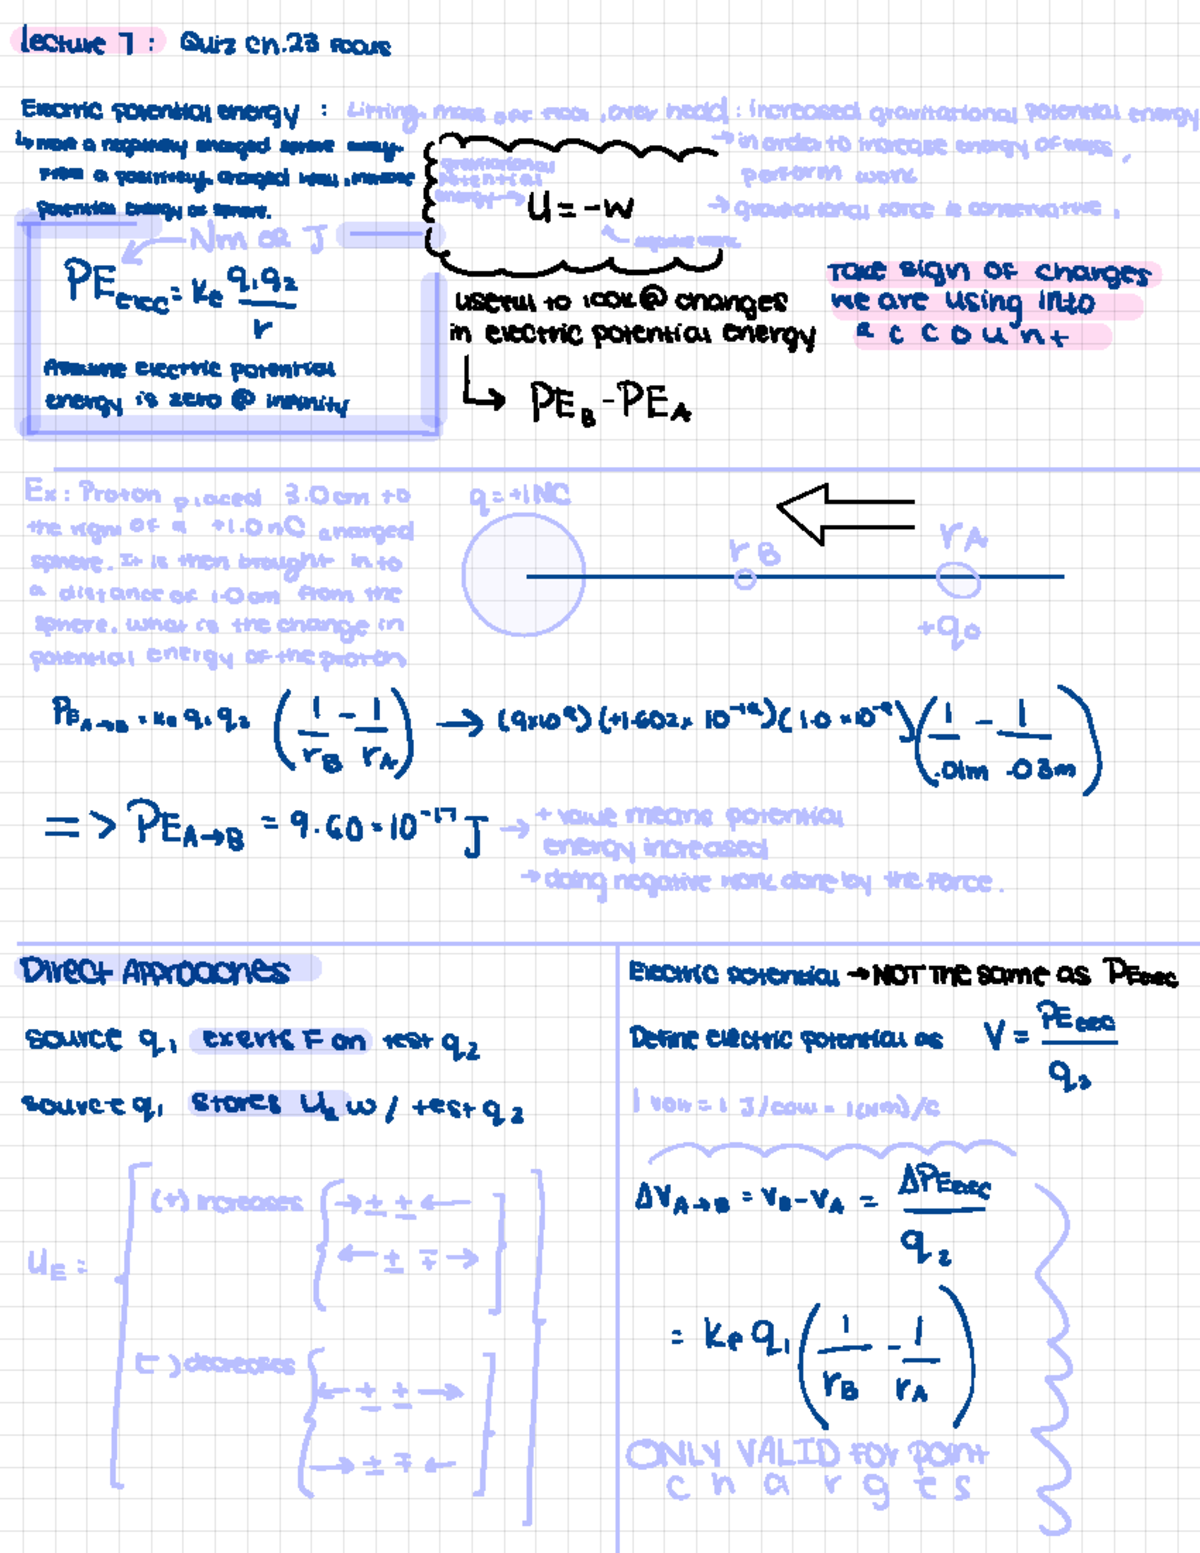 Lecture 7 : Quiz ch.23 Focus
Electric potential energy : Lifting mass off floor, over head : increased gravitational potential energy
↳ move a negatively charged sphere away
from a positively charged
potential energy of sphere.
→ in order to increase energy of mass,
perform work
→ gravitational force is conservative.
gravitational
potential
energy →
U = -W
Nm OR J
PE elec = Ke q1q2 / r
Assume electric potential
energy is zero @ infinity
useful to look @ changes
in electric potential energy
↳ PE_B - PE_A
Take sign of charges
we are using into
account
Ex: Proton placed 3.0cm to
the right of a +1.0nC charged
sphere. It is then brought in to
a distance of 1.0cm from the
sphere. What is the change in
potential energy of the proton
q = +1NC
r_B
r_A
+q0
PE_A→B = Ke q1 q2 (1/r_B - 1/r_A) → (9×10^9)(+1.602×10^-19)(1.0×10^-9)(1/.01m - 1/.03m)
=> PE_A→B = 9.60·10^-17 J → + value means potential
energy increased
→ doing negative work done by the force.
Direct Approaches
source q1 exerts F on test q2
source q1 stores U_E w/ test q2
U_E =
(+) increases
→ ± ± ←
← ± ∓ →
(-) decreases
← ± ± →
→ ± ∓ ←
Electric potential → NOT the same as PE elec
Define electric potential as V = PE elec / q2
1 volt = 1 J/coul = 1(Nm)/C
ΔV_A→B = V_B - V_A = ΔPE elec / q2
= Ke q1 (1/r_B - 1/r_A)
ONLY VALID for point
charges